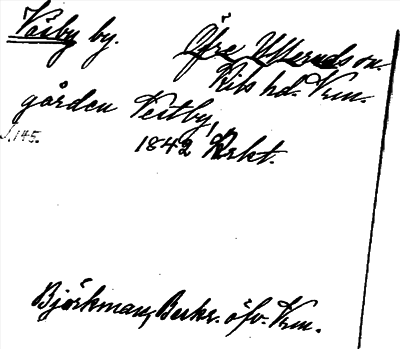 Väsby by. Öfre Ulleruds sn.
Kils hd. Vrm.
gården Vestby,
s. 145.
1842 Rxkt.
Björkman, Beskr. öfv. Vrm.